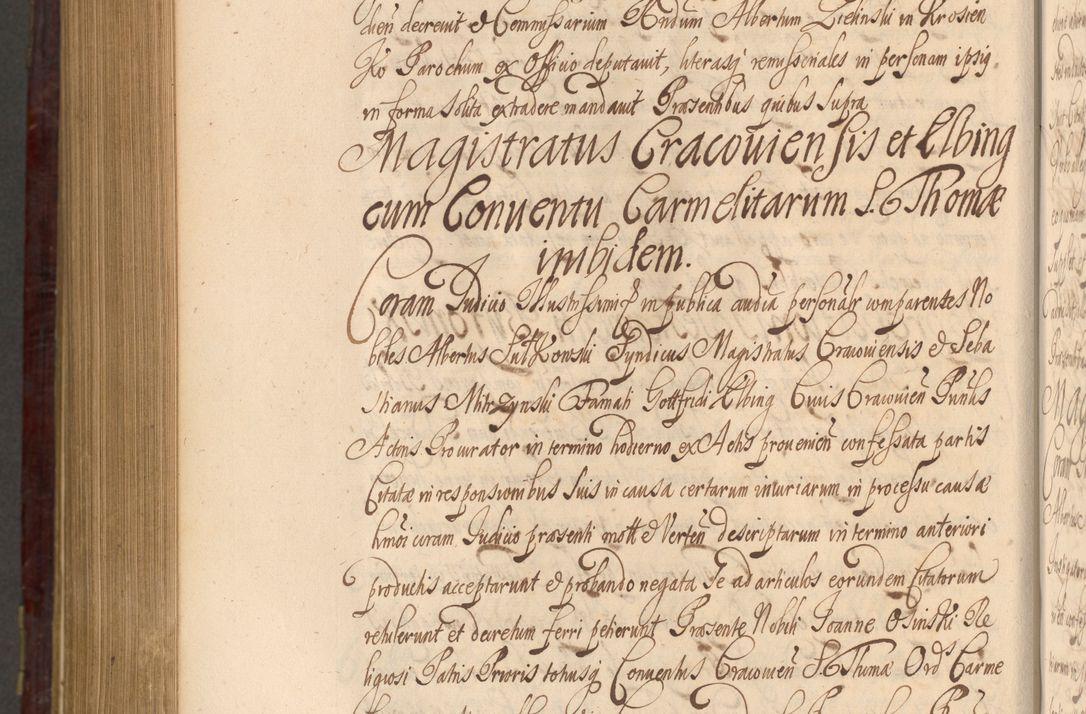 dien decrevit et Commissarium Rndum Albertum Zielinski in Krosien
ko Parochum ex Officio deputavit, literasq remissoriales in personam ipsig
in forma solita extradere mandavit Præsentibus quibus supra
Magistratus Cracoviensis et Elbing
cum Conventu Carmelitarum S. Thomæ
inibidem.
Coram Judicio Illustrissimi in publica audia personalr comparentes No
biles Albertus Sutkowski Syndicus Magistratus Cracoviensis et Seba
stianus Mitrzynski Famati Gottfridi Elbing Civis Cracovien Punlis
Actoris Procurator in termino hodierno ex Actis provenien confessata partis
Citatæ in responsionibus suis in causa certarum iniuriarum in processu causæ
hmoi coram Judicio præsenti mott et Verten descriptarum in termino anteriori
productis acceptarunt et probando negata se ad articulos eorundem Citatorum
retulerunt et decretum ferri petierunt Præsente Nobili Joanne Osinski Re
ligiosi Patris Prioris totiusq Conventus Cracovien S. Thomæ Ord Carme